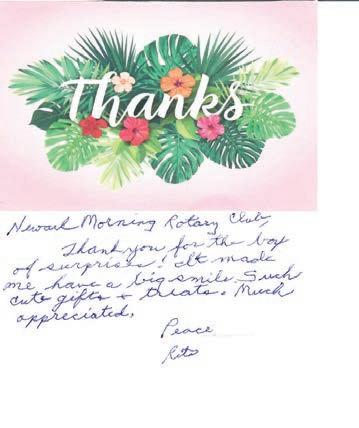 Thanks
Newark Morning Rotary Club,
Thank you for the box
of surprises! It made
me have a big smile. Such
cute gifts + treats. Much
appreciated.
Peace
Rita